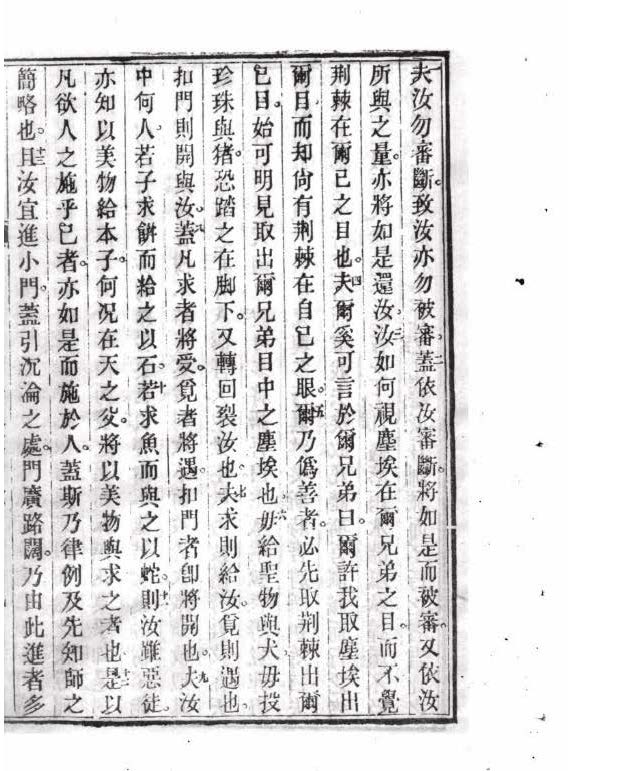 夫汝勿審斷。致汝亦勿被審。二蓋依汝審斷。將如是而被審。又依汝
所與之量。亦將如是還汝。三汝如何視塵埃在爾兄弟之目。而不覺
荊棘在爾己之目也。四夫爾奚可言於爾兄弟曰。爾許我取塵埃出
爾目。而却尙有荊棘在自己之眼。五爾乃僞善者。必先取荊棘出爾
己目。始可明見取出爾兄弟目中之塵埃也。六毋給聖物與犬。毋投
珍珠與猪。恐踏之在脚下。又轉回裂汝也。七夫求則給汝。覓則遇也。
扣門則開與汝。八蓋凡求者將受。覓者將遇。扣門者卽將開也。九夫汝
中何人。若子求餅而給之以石。十若求魚而與之以蛇。十一則汝雖惡徒。
亦知以美物給本子。何况在天之父。將以美物與求之者也。十二是以
凡欲人之施乎己者。亦如是而施於人。蓋斯乃律例及先知師之
簡略也。十三且汝宜進小門。蓋引沉淪之處。門廣路闊。乃由此進者多